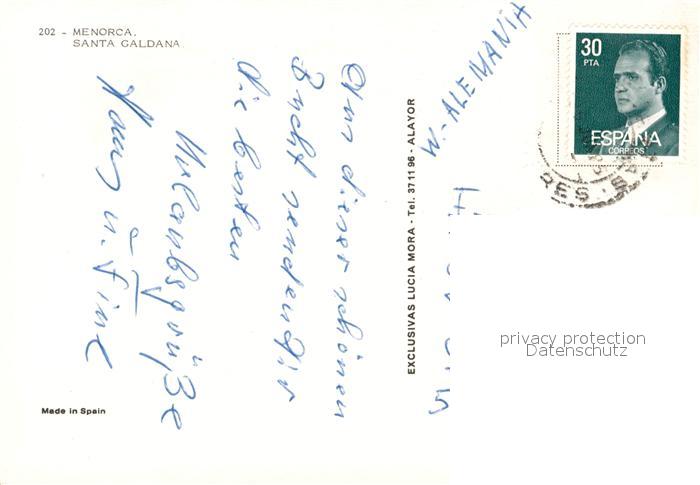 202 - MENORCA.
SANTA GALDANA
Aus dieser schönen
Bucht senden Dir
die besten
Urlaubsgrüße
Haus u. Tine
EXCLUSIVAS LUCIA MORA - Tel. 37 11 96 - ALAYOR
W.-ALEMANIA
30
PTA
ESPAÑA
CORREOS
privacy protection
Datenschutz
Made in Spain